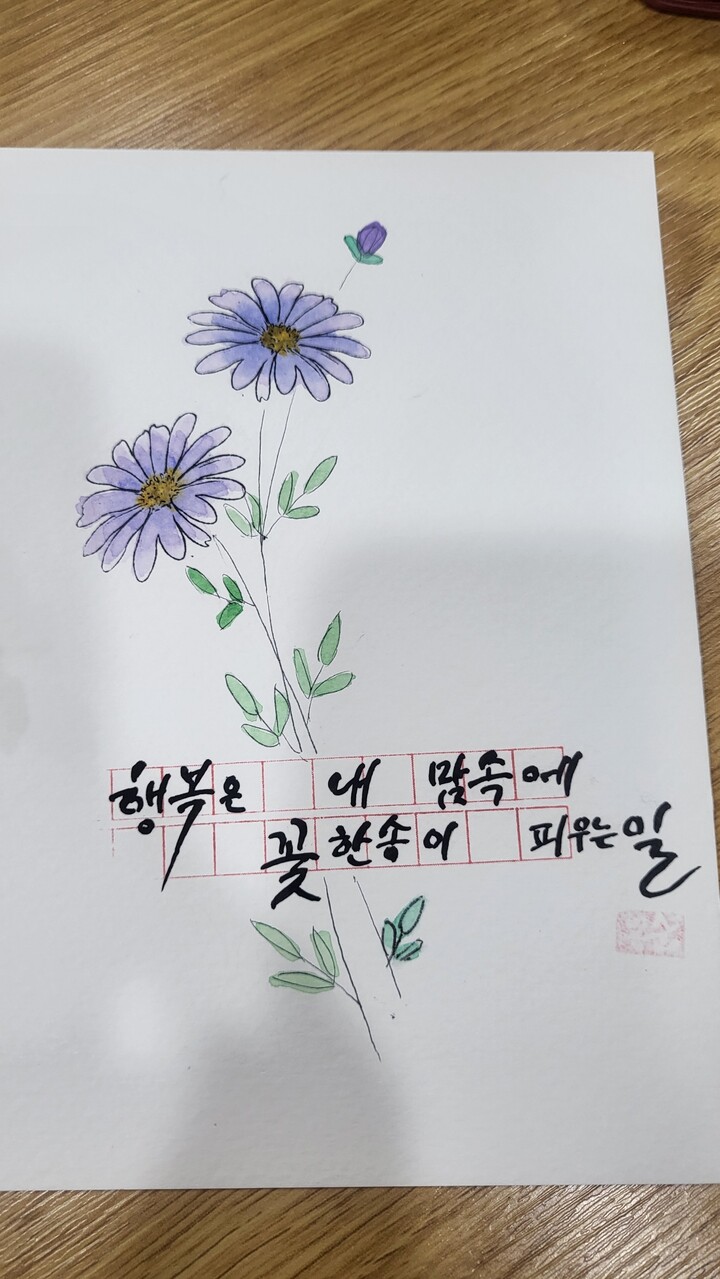 행복은 내 맘속에
꽃한송이 피우는 일